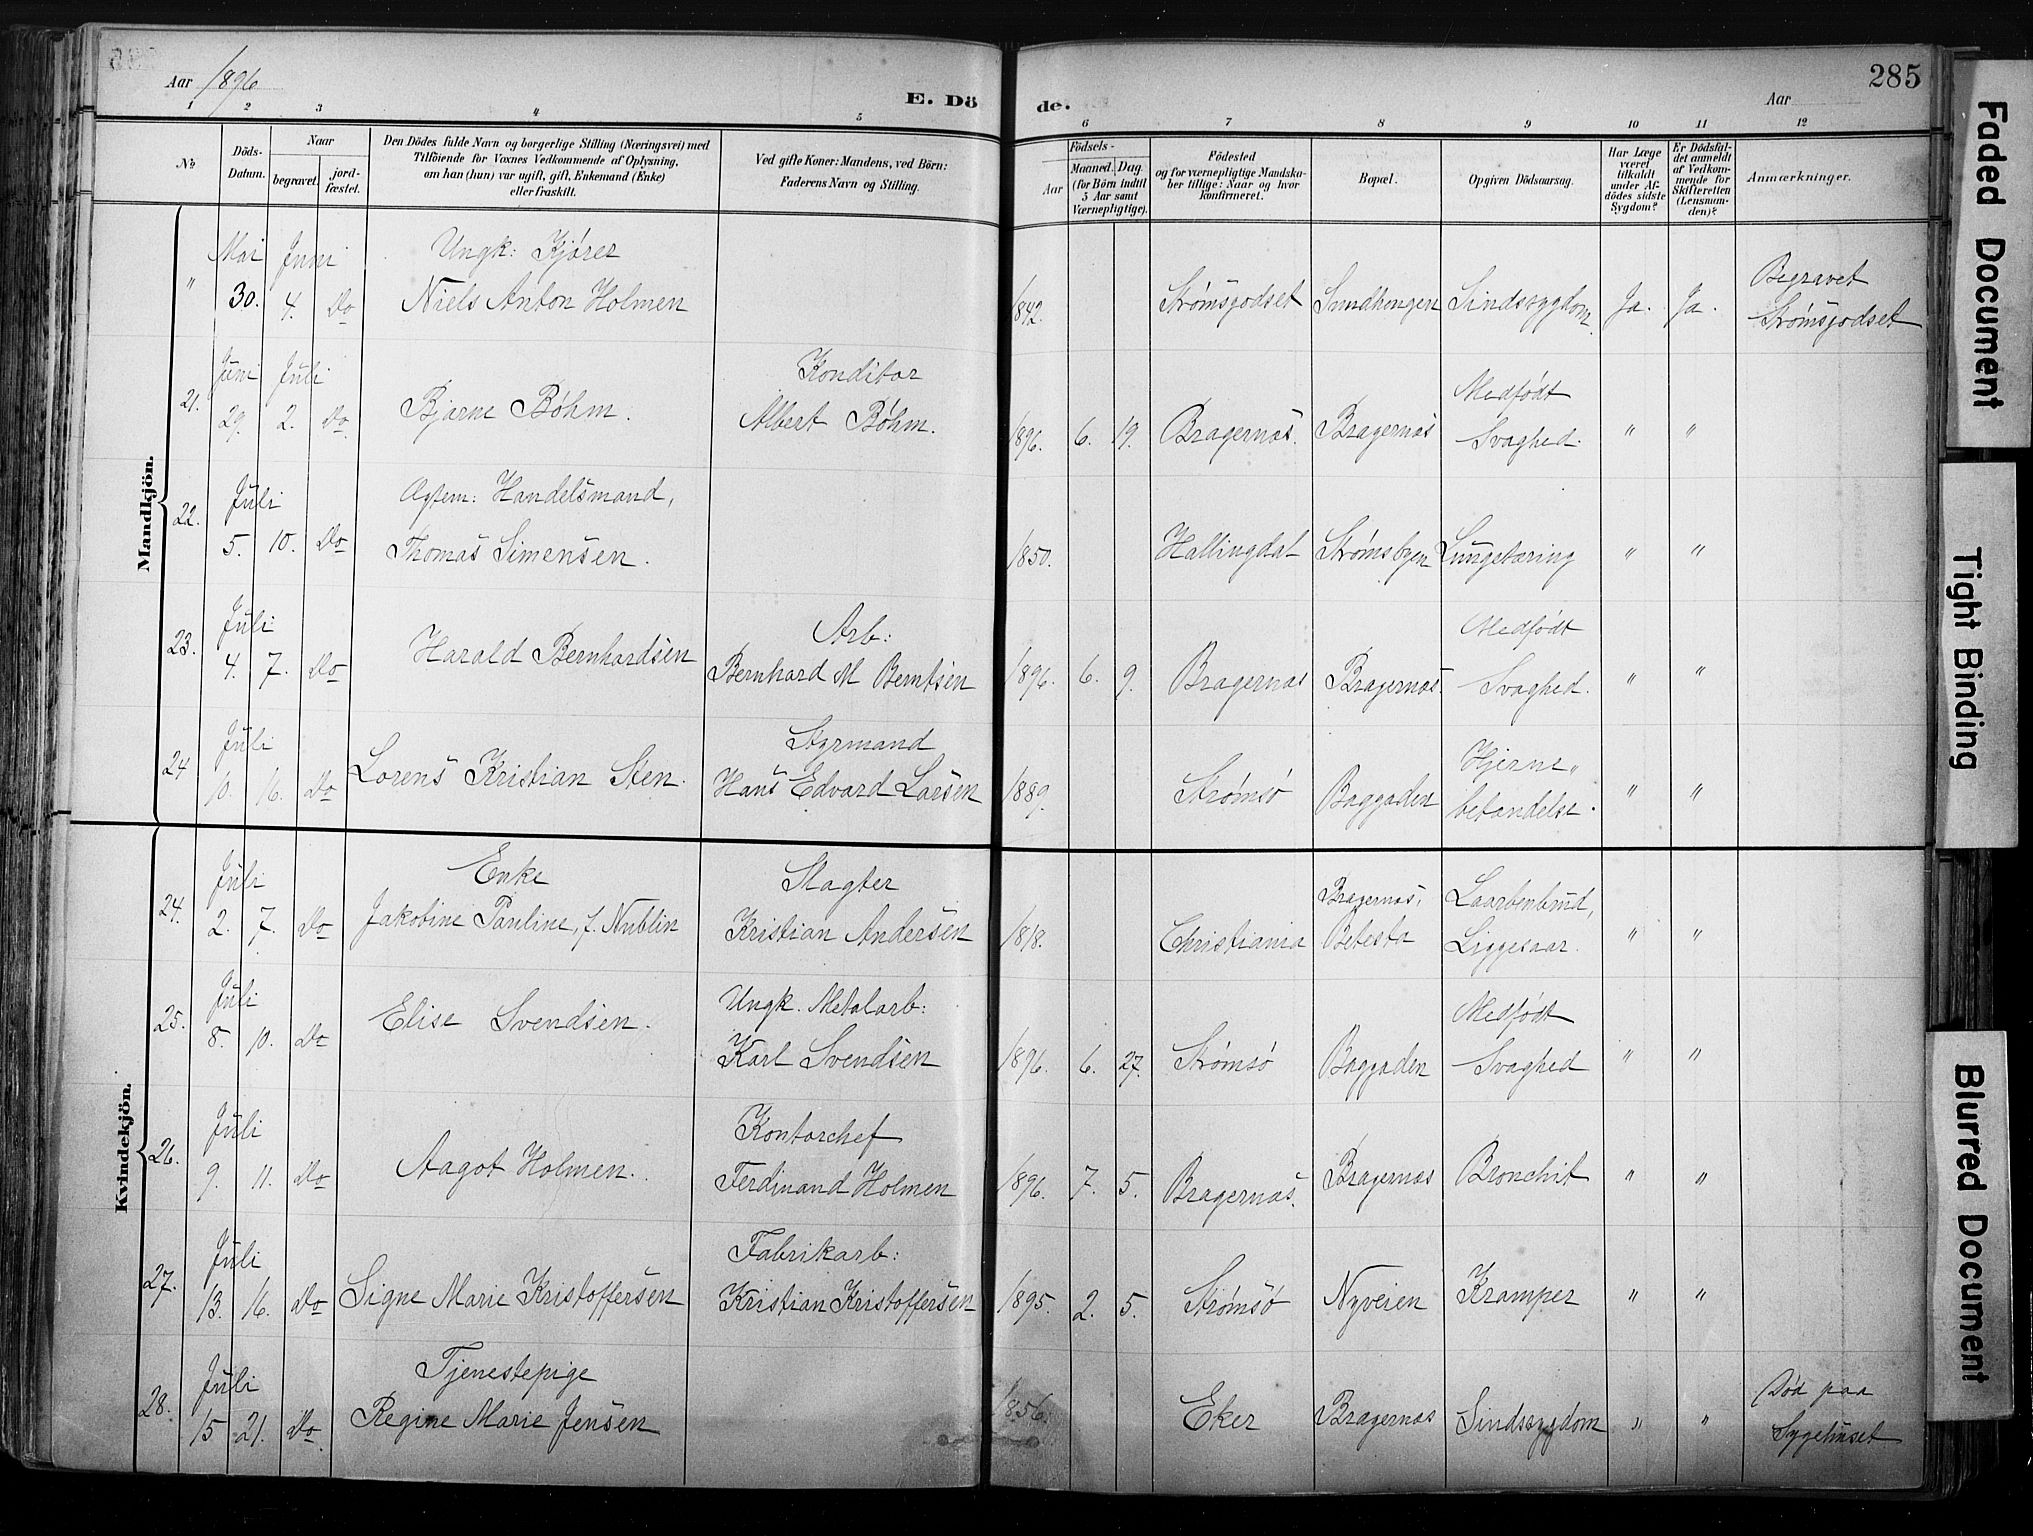 Aar 1896
E. Döde.
Aar
285
1 2 3 4 5 6 7 8 9 10 11 12
No
Döds-Datum.
Naar
begravet.
jordfæstet.
Den Dödes fulde Navn og borgerlige Stilling (Næringsvei) med
Tilföiende for Voxnes Vedkommende af Oplysning,
om han (hun) var ugift, gift, Enkemand (Enke)
eller fraskilt.
Ved gifte Koner: Mandens, ved Börn:
Faderens Navn og Stilling.
Födsels-
Aar
Maaned. Dag.
(for Börn indtil
5 Aar samt
Værnepligtige).
Födested
og for værnepligtige Mandskaber
tillige: Naar og hvor
konfirmeret.
Bopæl.
Opgiven Dödsaarsag.
Har Læge
været
tilkaldt
under Afdödes
sidste
Sygdom?
Er Dödsfaldet
anmeldt
af Vedkommende
for
Skifteretten
(Lensmanden)?
Anmærkninger.
Mandkjön.
Mai Juni Ungk: Kjører
" 30. 4. Do Niels Anton Holmen 1842. Strømsgodset Sundhaugen Sindssygdom. Ja. Ja. Begravet
Strømsgodset
Juni Juli Konditor Medfødt
21. 29. 2. Do Bjarne Bøhm. Albert Bøhm. 1896. 6. 19. Bragernæs. Bragernæs Svaghed. " "
Juli Agtem: Handelsmand,
22. 5. 10. Do Thomas Simensen. 1850. Hallingdal Strømsbyen Lungetæring " "
Juli Arb: Medfødt
23. 4. 7. Do Harald Bernhardsen Bernhard M Berntsen 1896. 6. 9. Bragernæs Bragernæs. Svaghed. " "
Juli Styrmand Hjerne„
24 10. 16. Do Lorens Kristian Sten. Hans Edvard Larsen 1889. Strømsø Baggaden betændelse. " "
Kvindekjön.
Juli Enke Slagter Bragernæs, Laarbenbrud,
24. 2. 7. Do Jakobine Pauline, f. Nublin Kristian Andersen 1818. Christiania Betesta Liggesaar. " "
Juli Ungk. Metalarb: Medfødt
25. 8. 10. Do Elise Svendsen. Karl Svendsen 1896. 6. 27. Strømsø Baggaden Svaghed " "
Juli Kontorchef
26. 9. 11. Do Aagot Holmen. Ferdinand Holmen 1896. 7. 5. Bragernæs. Bragernæs Bronchit " "
Juli Fabrikarb:
27. 13. 16. Do Signe Marie Kristoffersen Kristian Kristoffersen 1895. 2. 5. Strømsø Nyveien Kramper " "
Juli Tjenestepige Død paa
28. 15 21. Do Regine Marie Jensen 1856. Eker Bragernæs Sindssygdom " " Sygehuset
Faded Document
Tight Binding
Blurred Document